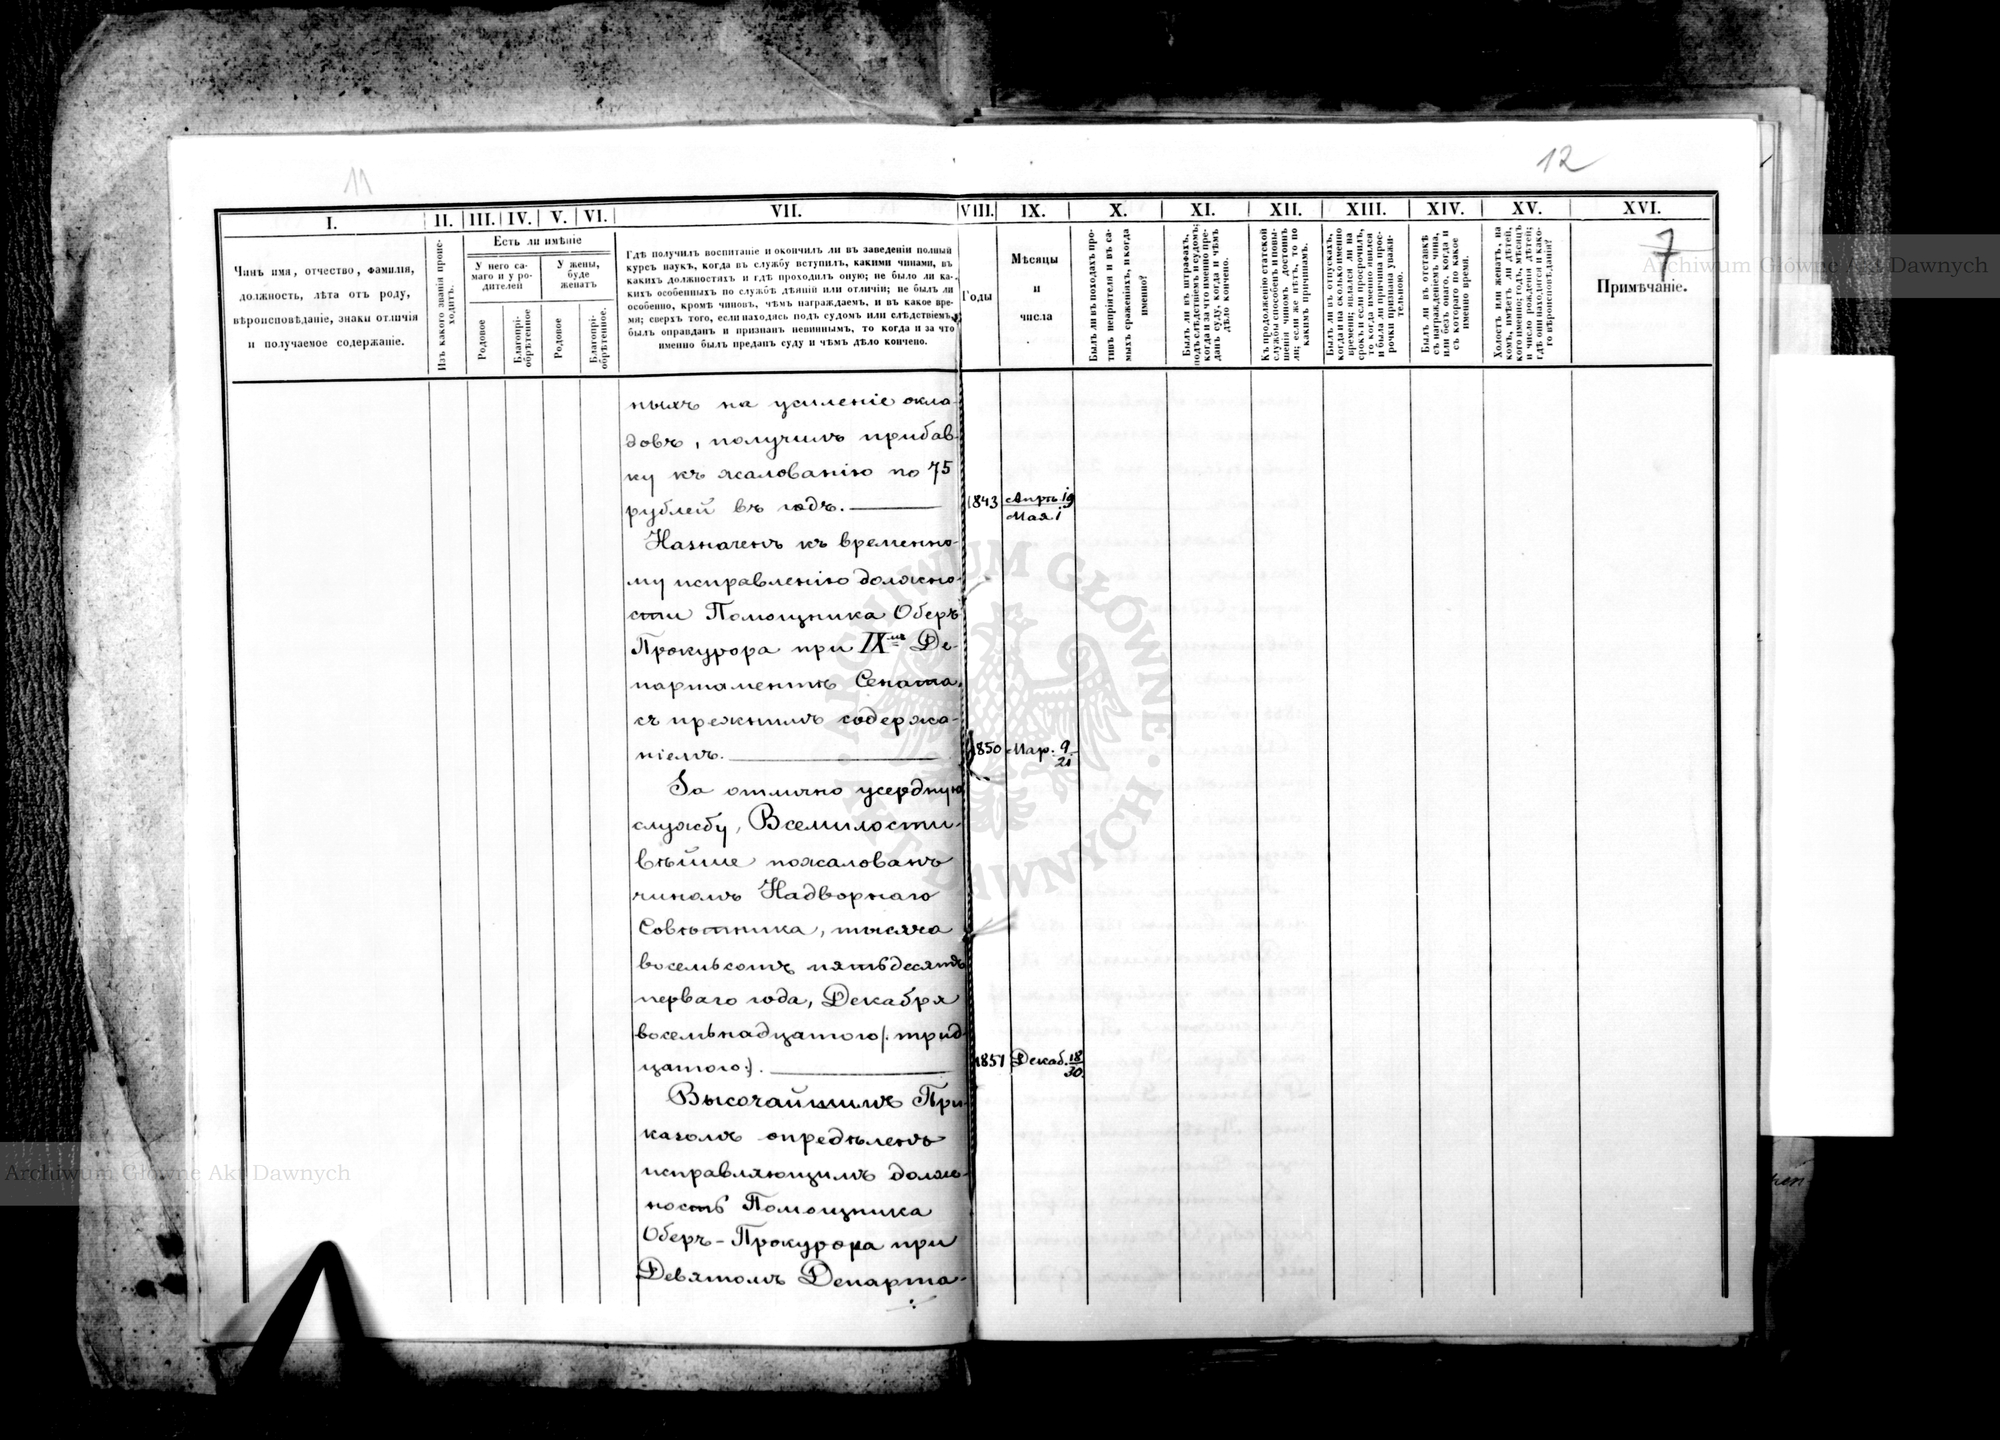 11
12
7
I.
II.
III.
IV.
V.
VI.
VII.
VIII.
IX.
X.
XI.
XII.
XIII.
XIV.
XV.
XVI.
Чинъ имя, отчество, фамилія,
должность, лѣта отъ роду,
вѣроисповѣданіе, знаки отличія
и получаемое содержаніе.
Изъ какого званія проис-
ходитъ.
Есть ли имѣніе
У него са-
маго и у ро-
дителей
У жены,
буде
женатъ
Родовое
Благопрі-
обрѣтенное
Родовое
Благопрі-
обрѣтенное.
Гдѣ получилъ воспитаніе и окончилъ ли въ заведеніи полный
курсъ наукъ, когда въ службу вступилъ, какими чинами, въ
какихъ должностяхъ и гдѣ проходилъ оную; не было ли ка-
кихъ особенныхъ по службѣ дѣяній или отличіи; не былъ ли
особенно, кромѣ чиновъ, чѣмъ награждаемъ, и въ какое вре-
мя; сверхъ того, если находясь подъ судомъ или слѣдствіемъ,
былъ оправданъ и признанъ невиннымъ, то когда и за что
именно былъ преданъ суду и чѣмъ дѣло кончено.
Годы
Мѣсяцы
и
числа
Былъ ли въ походахъ про-
тивъ непріятеля и въ са-
мыхъ сраженіяхъ, и когда
именно?
Былъ ли въ штрафахъ,
подъ слѣдствіемъ и судомъ;
когда и за что именно пре-
данъ суду, когда и чѣмъ
дѣло кончено.
Къ продолженію статской
службы способенъ и повы-
шенія чиномъ достоинъ
ли; если же нѣтъ, то по
какимъ причинамъ.
Былъ ли въ отпускахъ,
когда и на сколько именно
времени; явился ли на
срокъ и если просрочилъ,
то когда именно явился
и была ли причина прос-
рочки признана уважи-
тельною.
Былъ ли въ отставкѣ
съ награжденіемъ чина,
или безъ онаго, когда и
съ котораго по какое
именно время.
Холостъ или женатъ, на
комъ, имѣетъ ли дѣтей,
кого именно; годъ, мѣсяцъ
и число рожденія дѣтей;
гдѣ они находятся и како-
го вѣроисповѣданія?
Примѣчаніе.
ныхъ на усиленіе окла-
довъ, получилъ прибав-
ку къ жалованію по 75
рублей въ годъ.
1843 Апрѣ. 19
Мая. 1
Назначенъ къ временно-
му исправленію должно-
сти Помощника Оберъ
Прокурора при IXмъ Де-
партаментѣ Сената,
съ прежнимъ содержа-
ніемъ.
1850 Мар. 9
21
За отлично усердную
службу, Всемилости-
вѣйше пожалованъ
чиномъ Надворнаго
Совѣтника, тысяча
восемьсотъ пятьдесятъ
перваго года, Декабря
восемьнадцатого /: трид-
цатого :/.
1851 Декаб. 18
30.
Высочайшимъ При-
казомъ опредѣленъ
исправляющимъ долж-
ность Помощника
Оберъ-Прокурора при
Девятомъ Департа-
Archiwum Główne Akt Dawnych
Archiwum Główne Akt Dawnych
ARCHIWUM GŁÓWNE AKT DAWNYCH